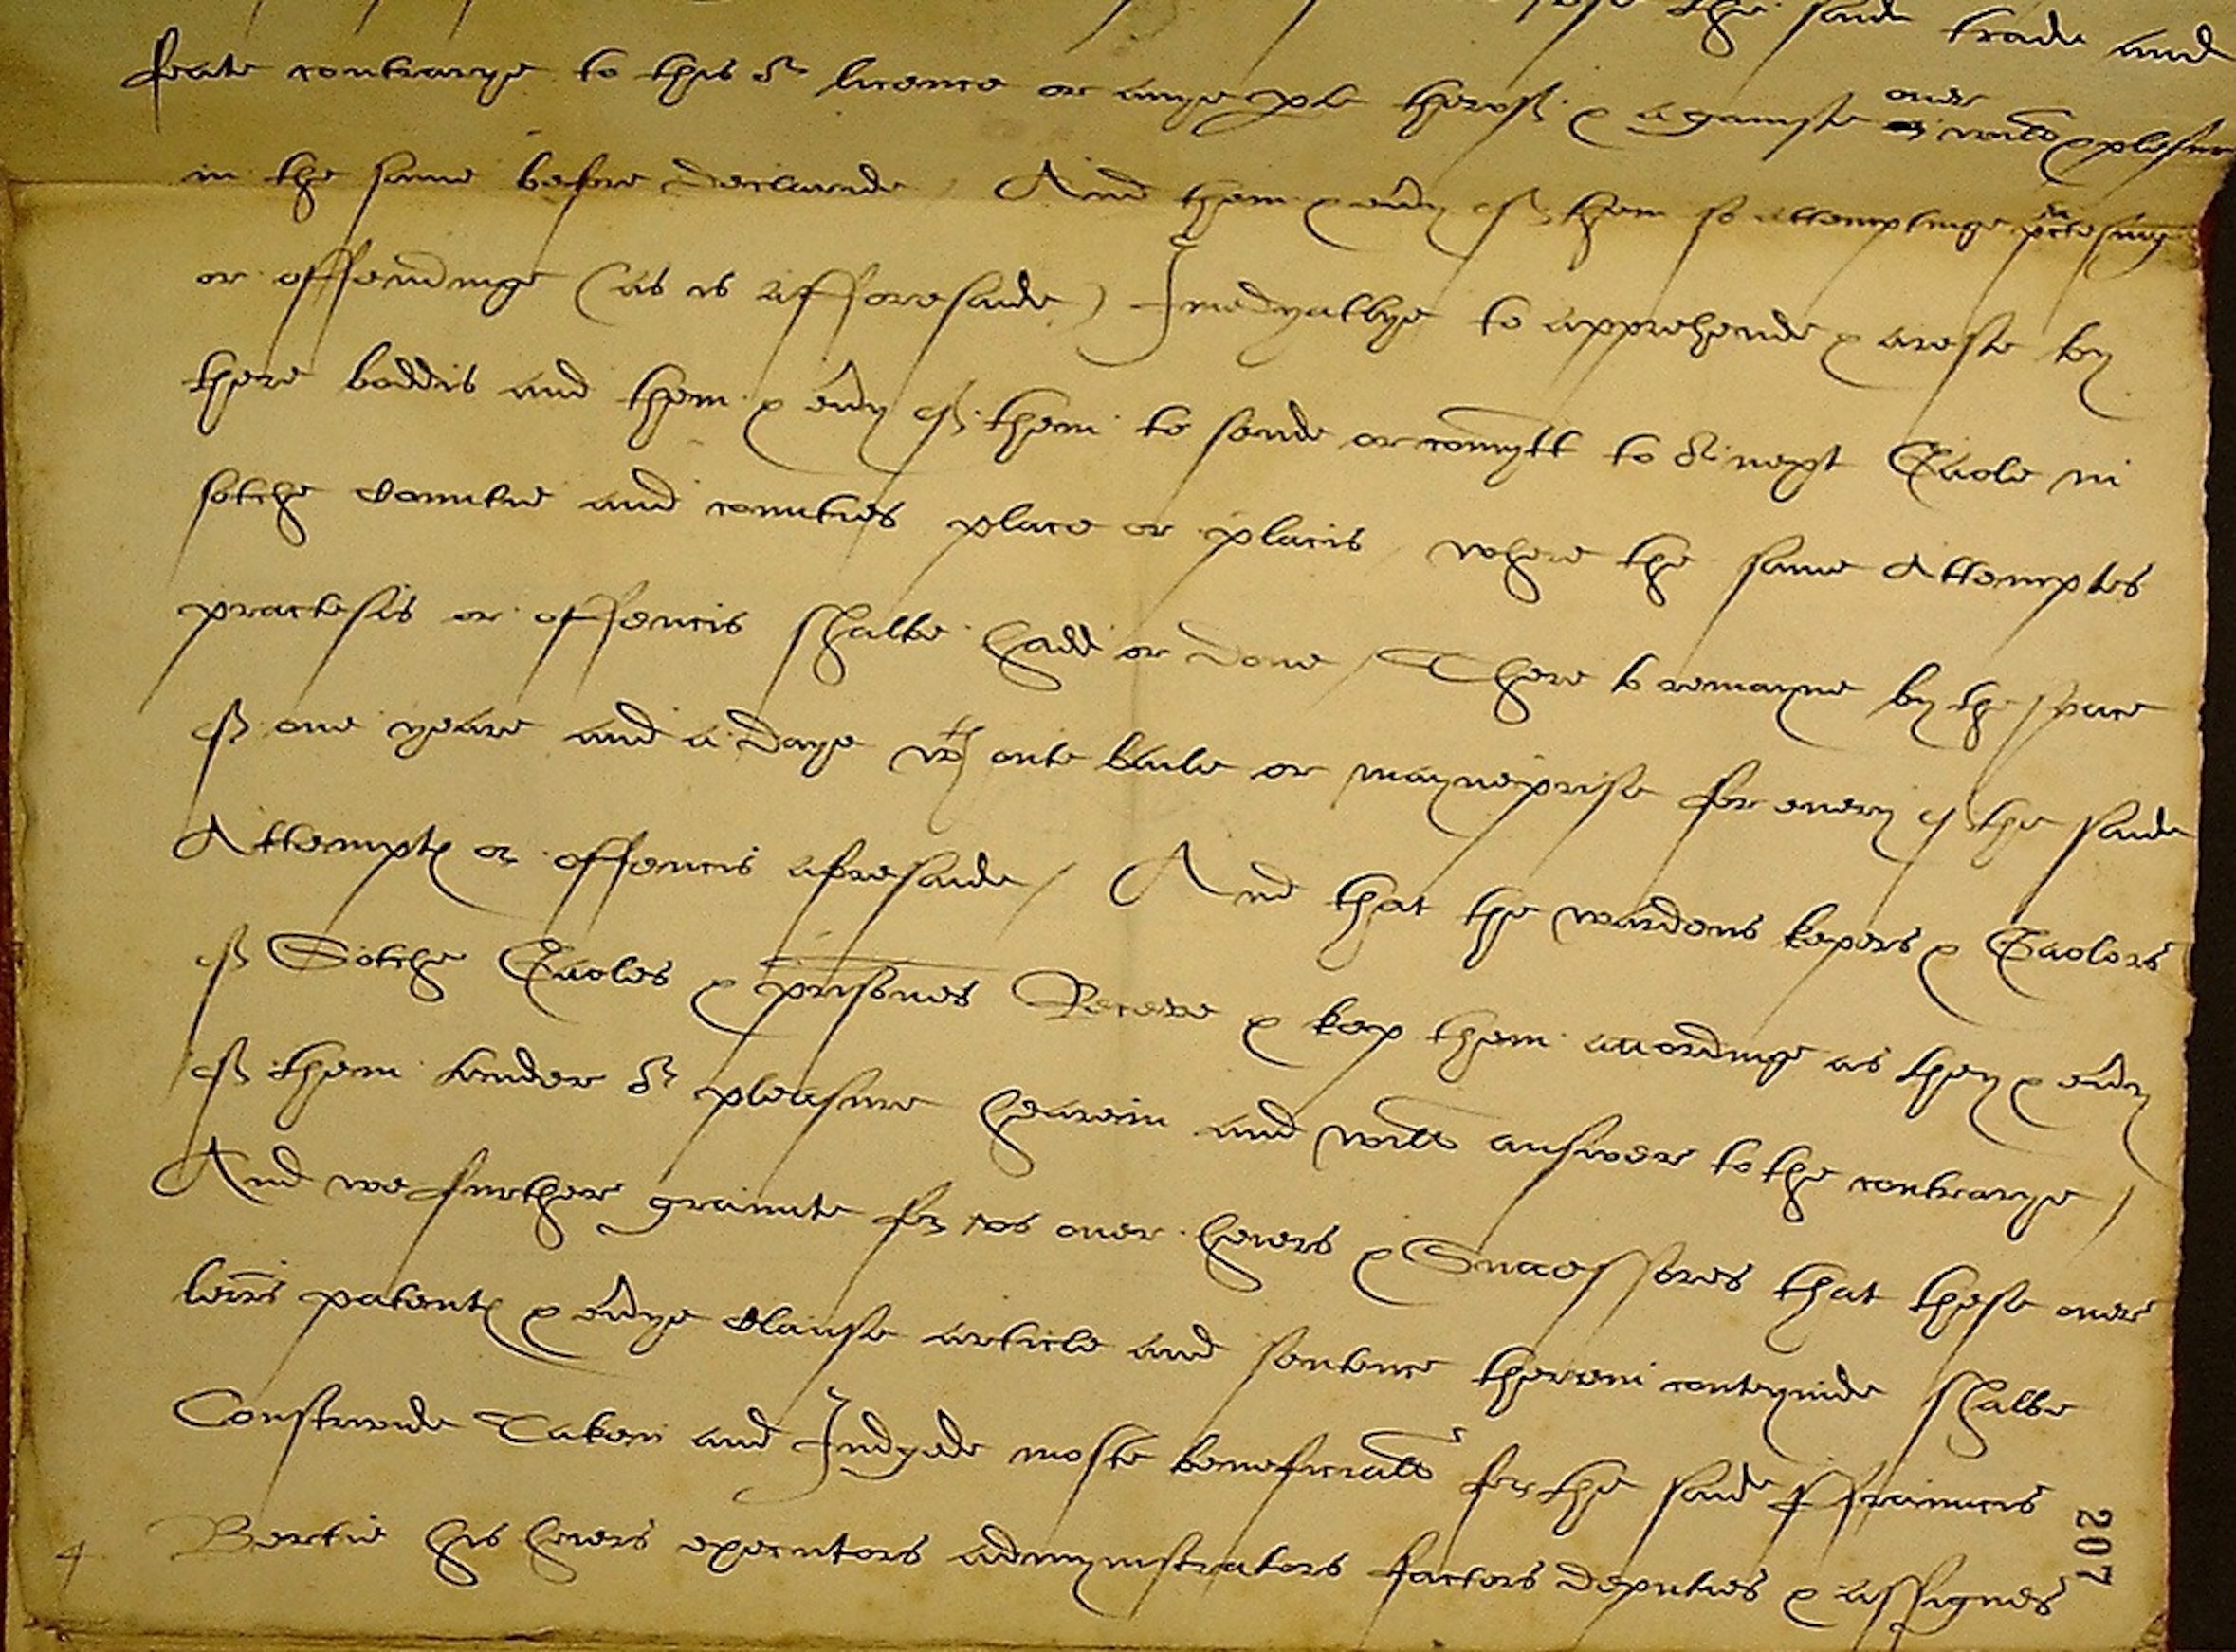 the saide trade and
feate contrarye to this or licence or anye pte therof & againste ouer will & plesure
in the same before declaride / And them & eũy of them so attemptinge practesing
or offendinge (as is afforesaide) Imedyatlye to apprehende & areste by
there boddis and them & eũy of them to sende or comytt to or next Gaole in
sotche Countie and counties place or placis where the same Attemptes
practesis or offencis shalbe hadd or done / There to remayne by the space
of one yeare and a daye wth oute baile or mayneprise for euery of the saide
Attempts or offencis aforesaide / And that the wardens kepers & Gaolors
of Sotche Gaoles & prisones Receve & kep them accordinge as they & eũy
of them tender or pleasure hearein and will answer to the contrarye /
And we further graunte for vs ouer heiers & Successores that these ouer
lr̃es patents & eũye Clause article and sentence therein conteynide shalbe
Construide Taken and Judgede moste beneficiall for the saide ffrauncis
Bertie his heiers executors admynistrators factors deputies & assignes
207